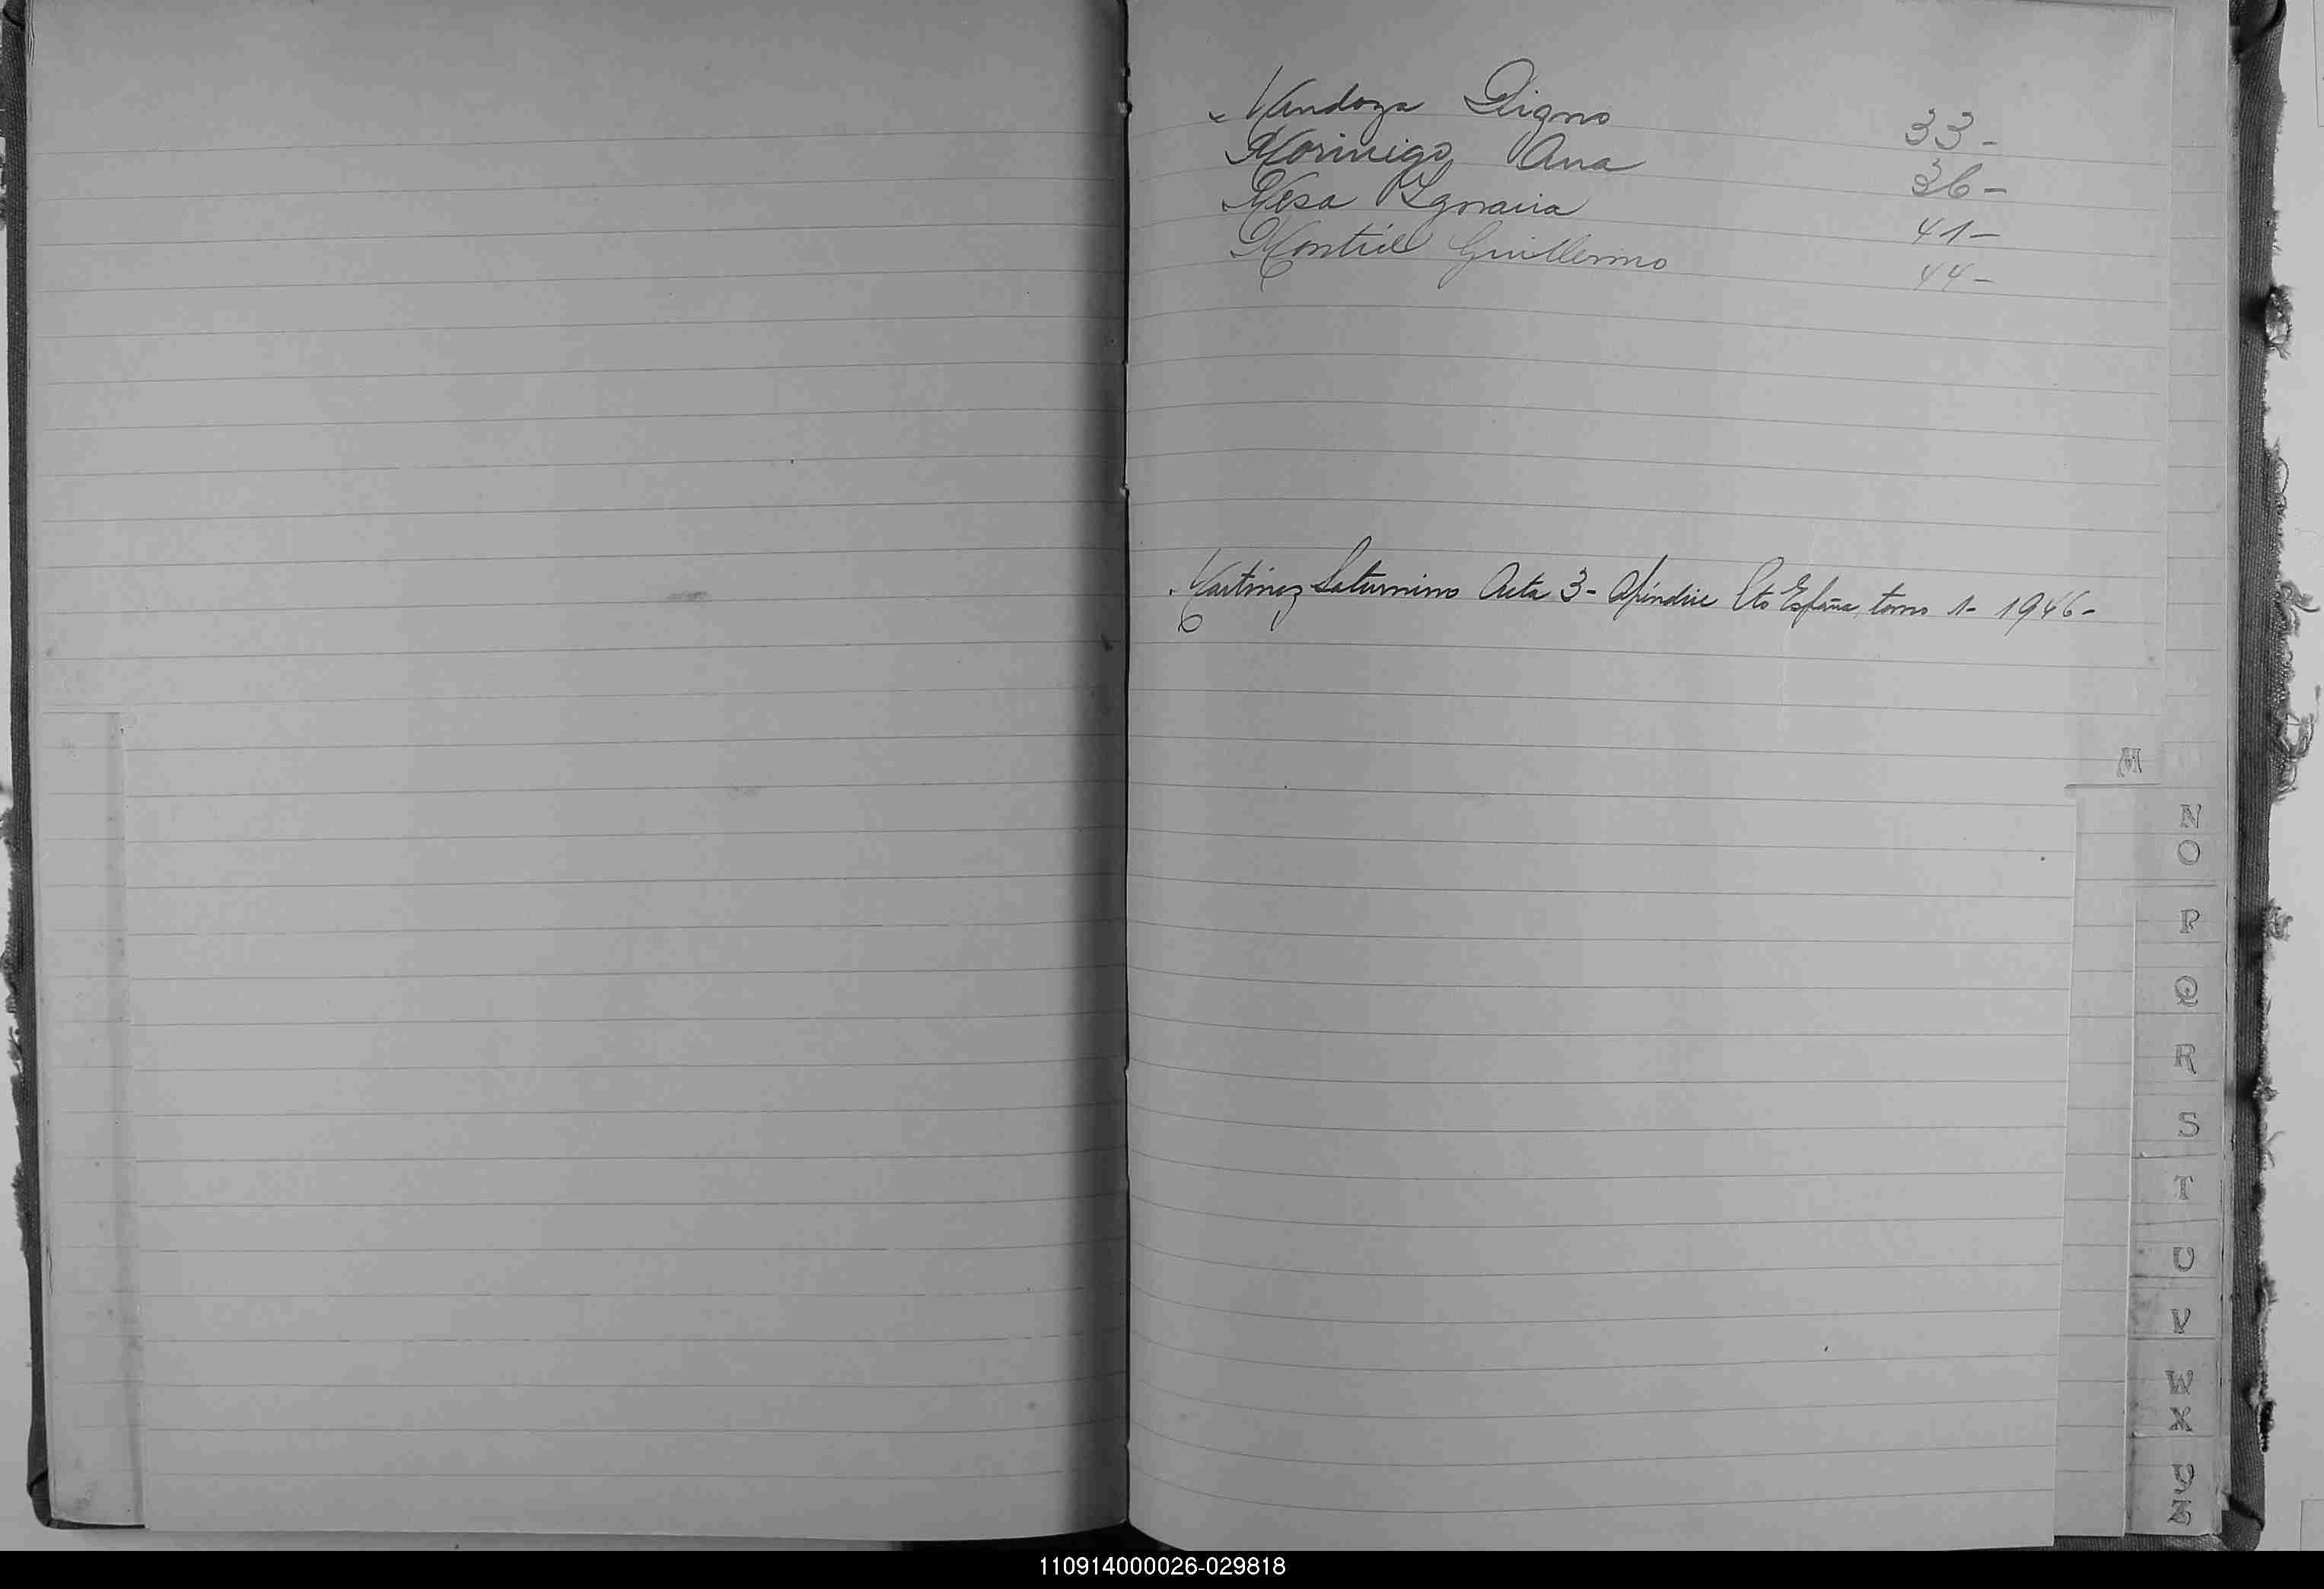 Mendoza Digno 33-
Morinigo Ana 36-
Mesa Ignacia 41-
Montiel Guillermo 44-
Martinez Saturnino Acta 3- Apéndice Cto España, tomo 1- 1946-
M
N
O
P
Q
R
S
T
U
V
W
X
Y
Z
110914000026-029818